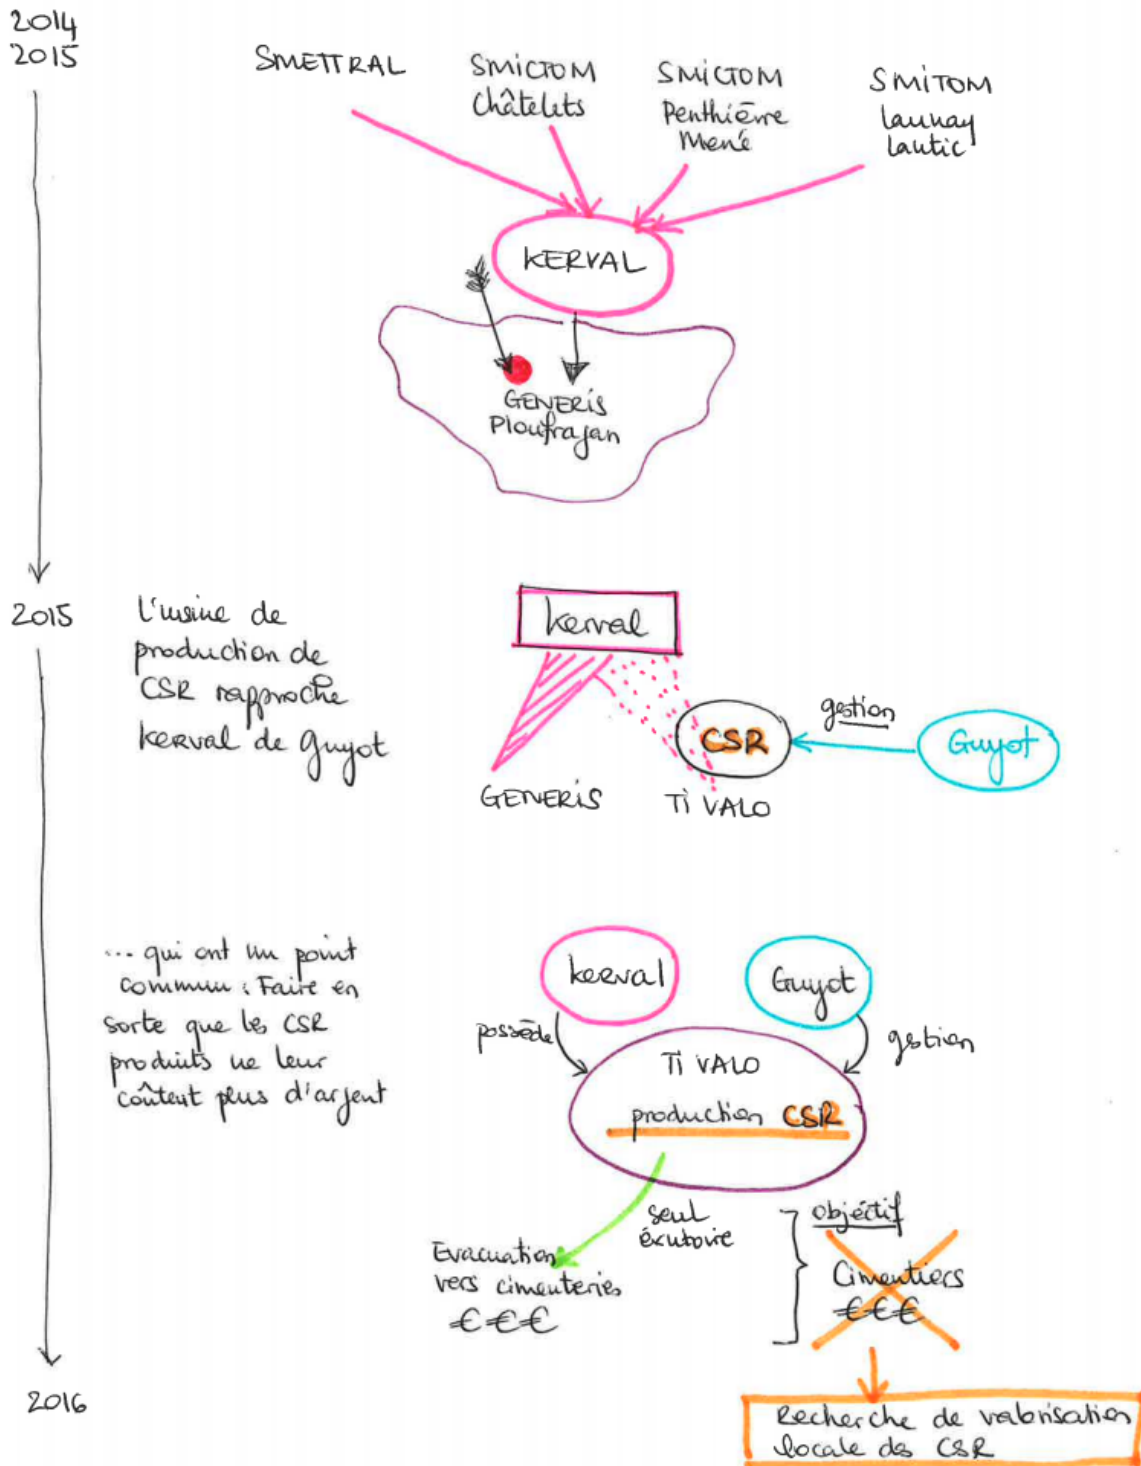 2014
2015
SMETTRAL
SMICTOM
Châtelets
SMICTOM
Penthièvre
Mené
SMITOM
Launay
Lantic
KERVAL
GENERIS
Ploufragan
2015
L'usine de
production de
CSR rapproche
kerval de Guyot
kerval
GENERIS
CSR
TI VALO
gestion
Guyot
... qui ont un point
commun : Faire en
sorte que les CSR
produits ne leur
coûtent plus d'argent
kerval
Guyot
possède
gestion
Ti VALO
production CSR
seul
exutoire
Evacuation
vers cimenteries
€€€
objectif
Cimentiers
€€€
2016
Recherche de valorisation
locale des CSR